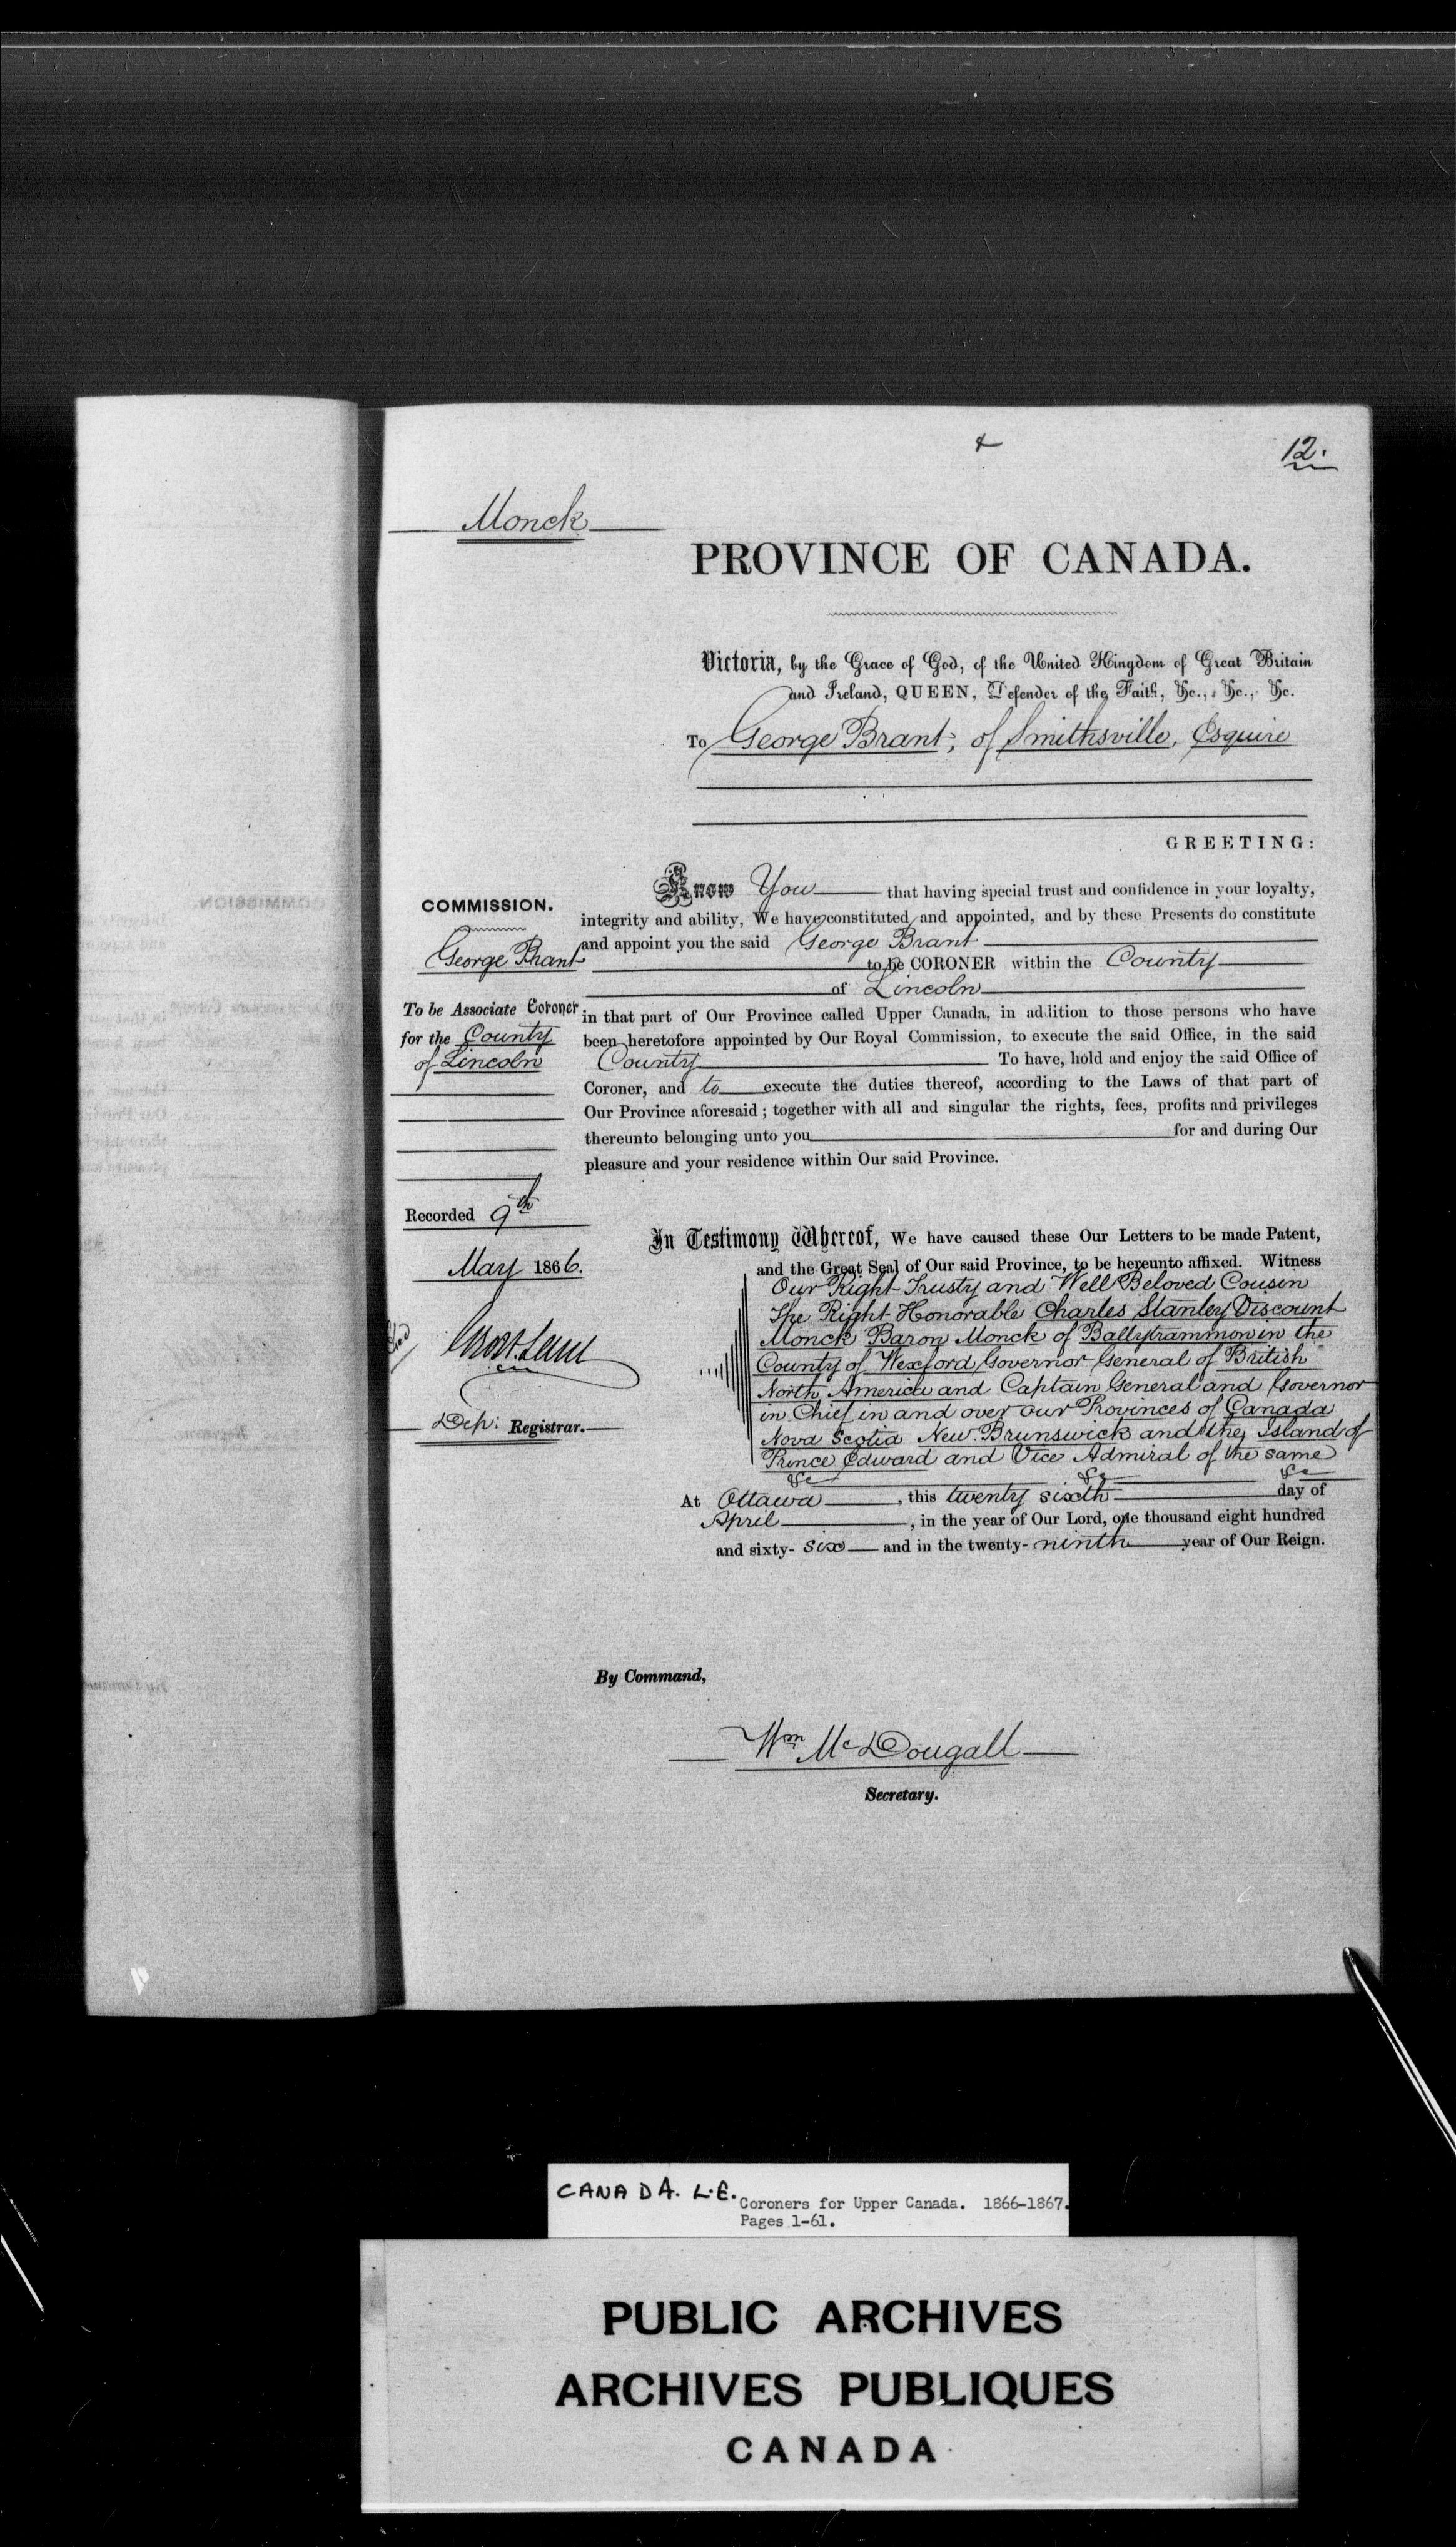 12.
Monck
PROVINCE OF CANADA.
Victoria, by the Grace of God, of the United Kingdom of Great Britain
and Ireland, QUEEN, Defender of the Faith, &c., &c., &c.
To George Brant, of Smithsville, Esquire
GREETING:
Know You that having special trust and confidence in your loyalty,
integrity and ability, We have constituted and appointed, and by these Presents do constitute
and appoint you the said George Brant
to be CORONER within the County
of Lincoln
in that part of Our Province called Upper Canada, in addition to those persons who have
been heretofore appointed by Our Royal Commission, to execute the said Office, in the said
County To have, hold and enjoy the said Office of
Coroner, and to execute the duties thereof, according to the Laws of that part of
Our Province aforesaid; together with all and singular the rights, fees, profits and privileges
thereunto belonging unto you for and during Our
pleasure and your residence within Our said Province.
COMMISSION.
George Brant
To be Associate Coroner
for the County
of Lincoln
Recorded 9th
May 1866.
Dep: Registrar.
In Testimony Whereof, We have caused these Our Letters to be made Patent,
and the Great Seal of Our said Province, to be hereunto affixed. Witness
Our Right Trusty and Well Beloved Cousin
The Right Honorable Charles Stanley Viscount
Monck Baron Monck of Ballytrammon in the
County of Wexford Governor General of British
North America and Captain General and Governor
in Chief in and over our Provinces of Canada
Nova Scotia New Brunswick and the Island of
Prince Edward and Vice Admiral of the same
&c &c &c
At Ottawa, this twenty sixth day of
April, in the year of Our Lord, one thousand eight hundred
and sixty-six and in the twenty-ninth year of Our Reign.
By Command,
Wm McDougall
Secretary.
CANADA. L.E.
Coroners for Upper Canada. 1866-1867.
Pages 1-61.
PUBLIC ARCHIVES
ARCHIVES PUBLIQUES
CANADA